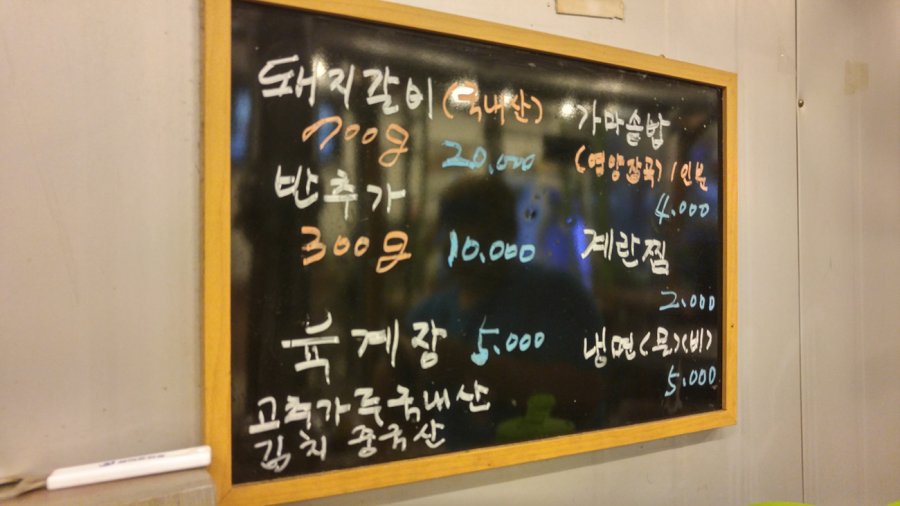 돼지갈비 (국내산)
700g 20,000
반추가
300g 10,000
육계장 5,000
고추가루 국내산
김치 중국산
가마솥밥
(영양잡곡) 1인분
4,000
계란찜
2,000
냉면(물)(비)
5,000